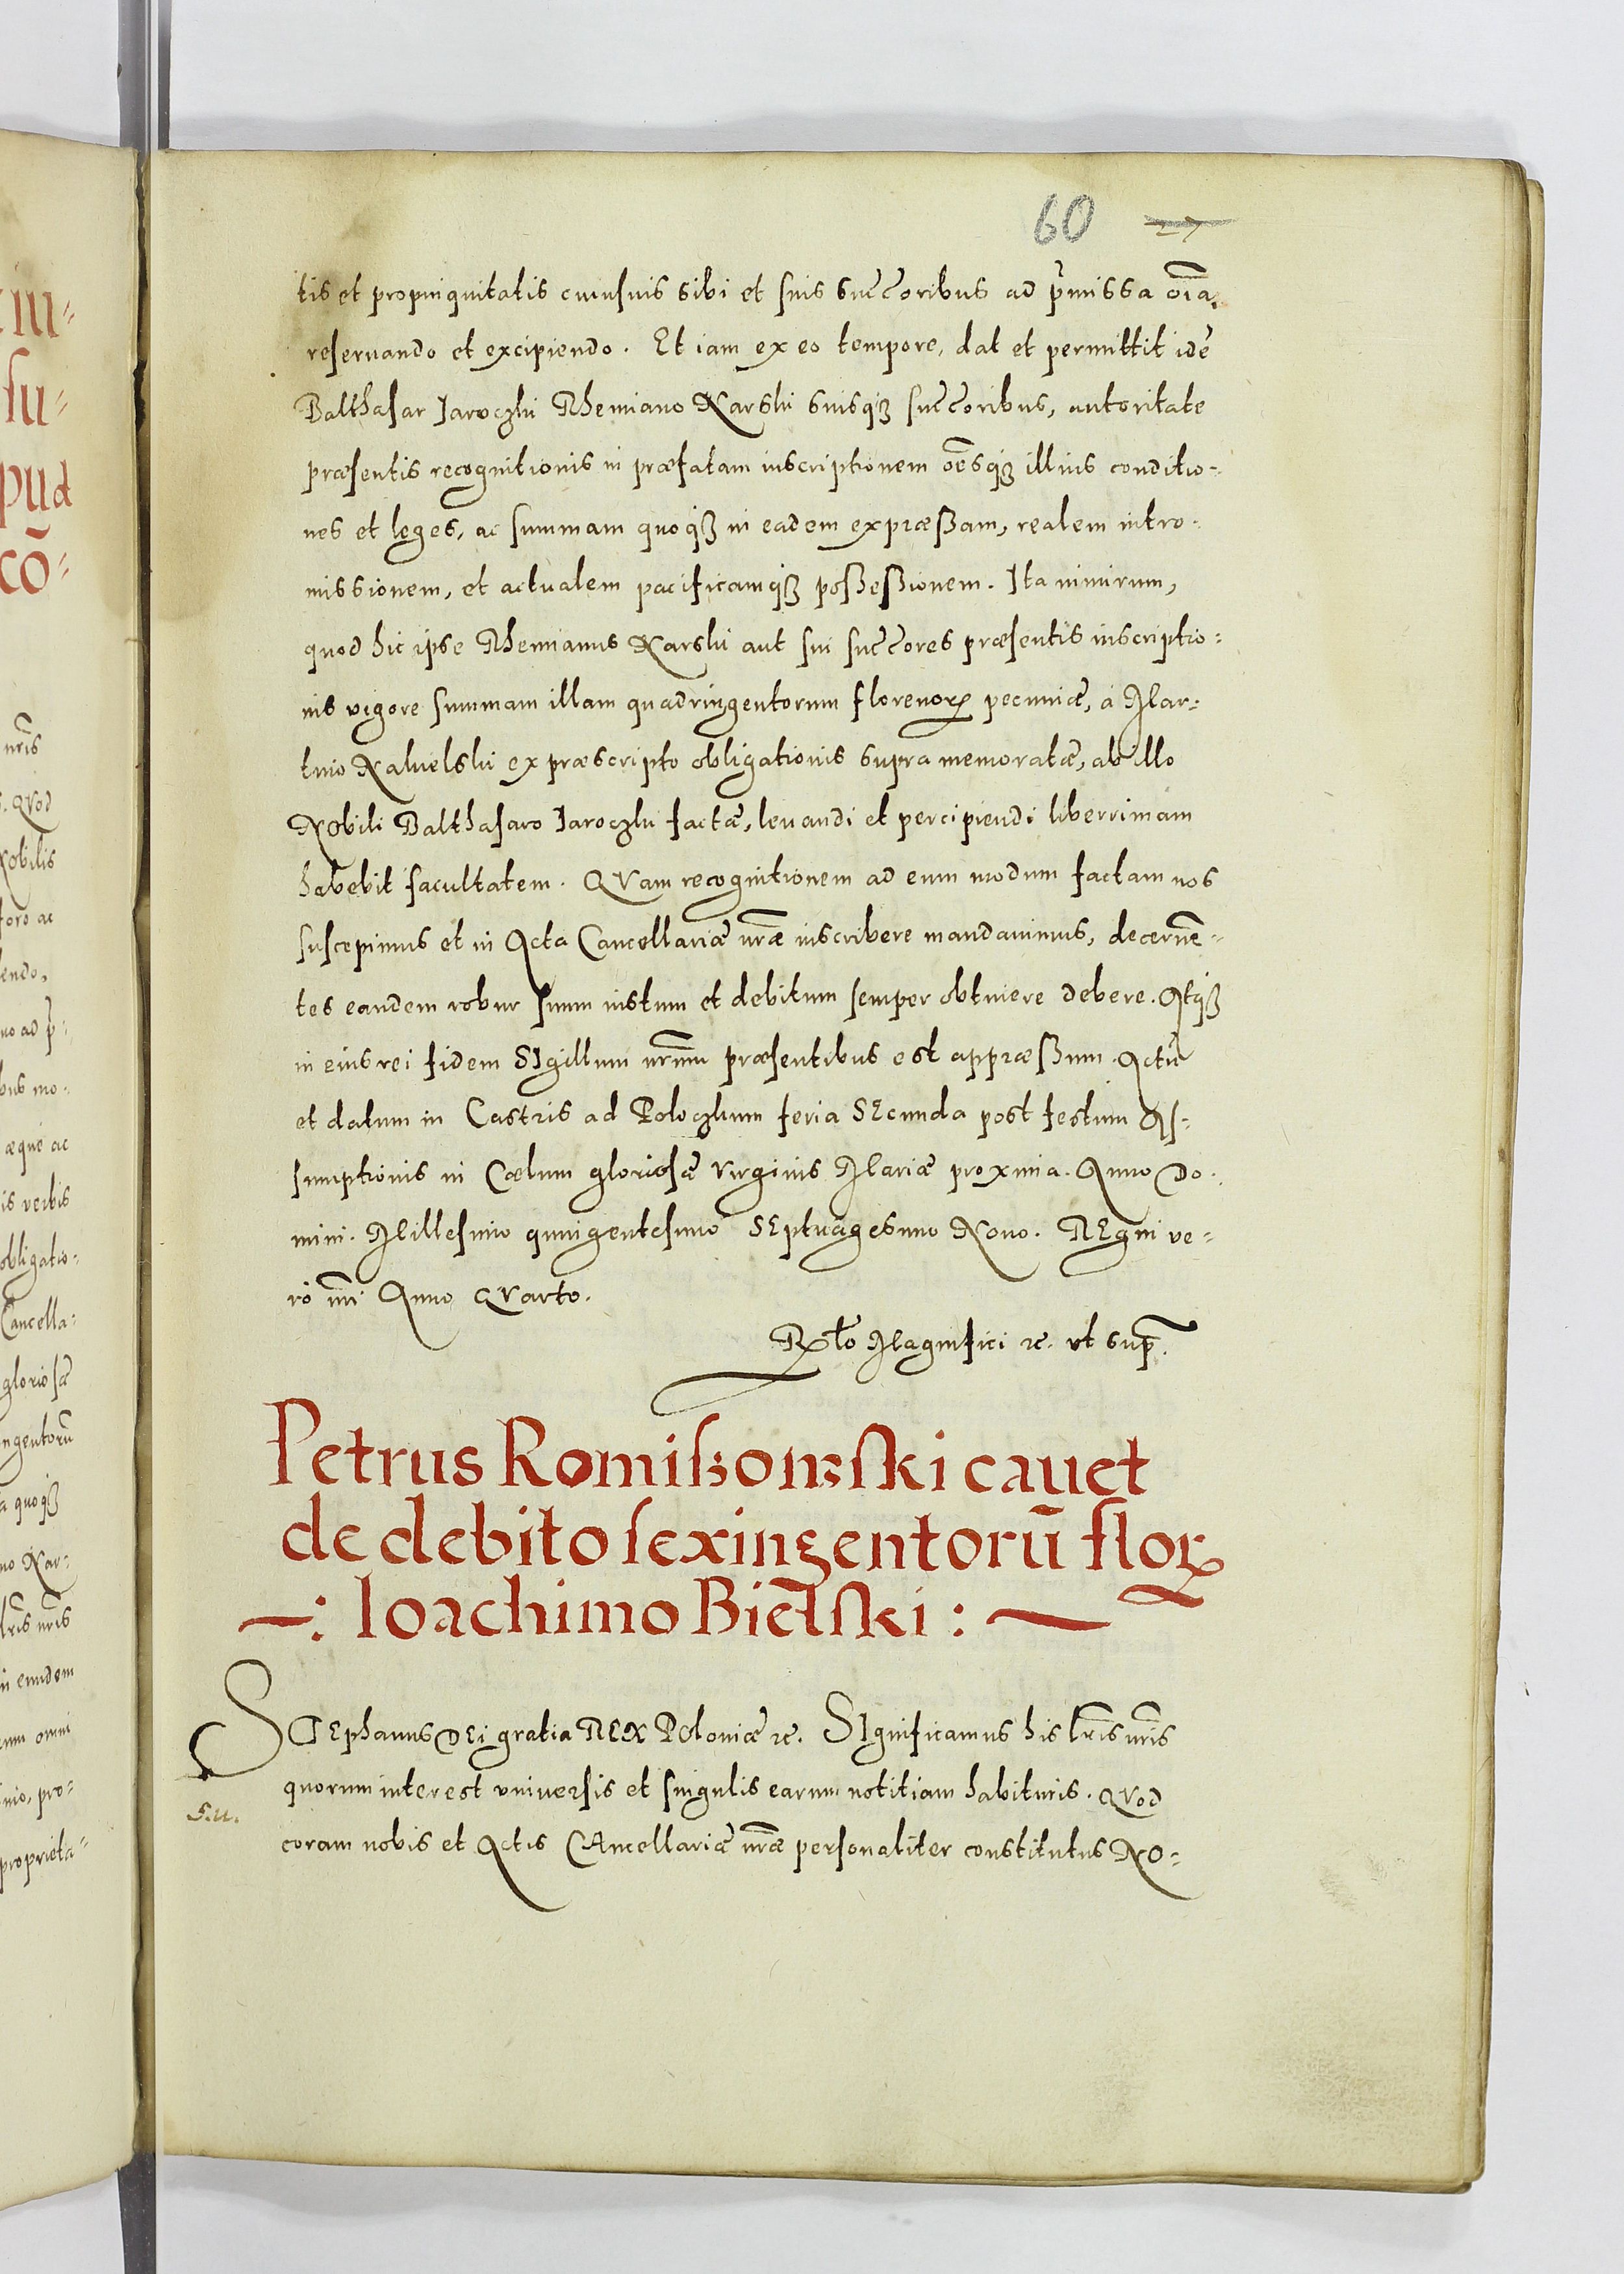 60 27
tis et propinquitatis cuiusuis sibi et suis succoribus ad pmissa oĩa
reseruando et excipiendo. Et iam ex eo tempore, dat et permittit idẽ
Balthasar Jaroczki Themiano Karski suisqз succoribus, autoritate
præsentis recognitionis in præfatam inscriptionem oẽsqз illius conditio-
nes et leges, ac summam quoqз in eadem expræßam, realem intro-
missionem, et actualem pacificamqз poßeßionem. Ita nimirum,
quod hic ipse Themianus Karski aut sui succores præsentis inscriptio-
nis vigore summam illam quadringentorum florenorꝝ pecuniæ, à Mar-
tino Kaluelski ex præscripto obligationis supra memoratæ, ab illo
Nobili Balthasaro Jaroczki factæ, leuandi et percipiendi liberrimam
habebit facultatem. QVam recognitionem ad eum modum factam nos
suscepimus et in Acta Cancellariæ nræ inscribere mandauimus, decernẽ-
tes eandem robur suum iustum et debitum semper obtinere debere. Atqз
in eius rei fidem SIgillum nrum præsentibus est appræßum. Actũ
et datum in Castris ad Poloczkum feria SEcunda post festum As-
sumptionis in Cœlum gloriosæ Virginis Mariæ proxima. Anno Do-
mini. Millesimo quingentesimo SEptuagesimo Nono. REgni ve-
rò nri Anno QVarto.
Rlto Magnifici ꝛc. vt supˉ.
Petrus Romiszowski cauet
de debito sexingentorũ florꝝ
Ioachimo Bielski:
STEphanus DEi gratia REX POloniæ ꝛc. SIgnificamus his lris nris
quorum interest vniuersis et singulis earum notitiam habituris. QVod
S.u.
coram nobis et Actis CAncellariæ nræ personaliter constitutus NO-